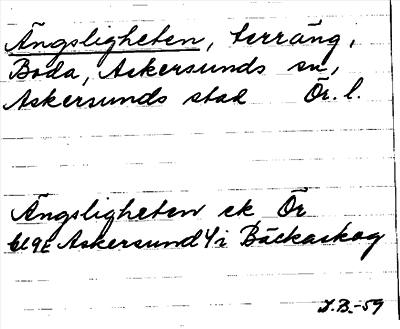 Ängsligheten, terräng,
Boda, Askersunds sn,
Askersunds stad Ör. l.
Ängsligheten ek Ör
Askersund 4i Bäckaskog
J.B.-59